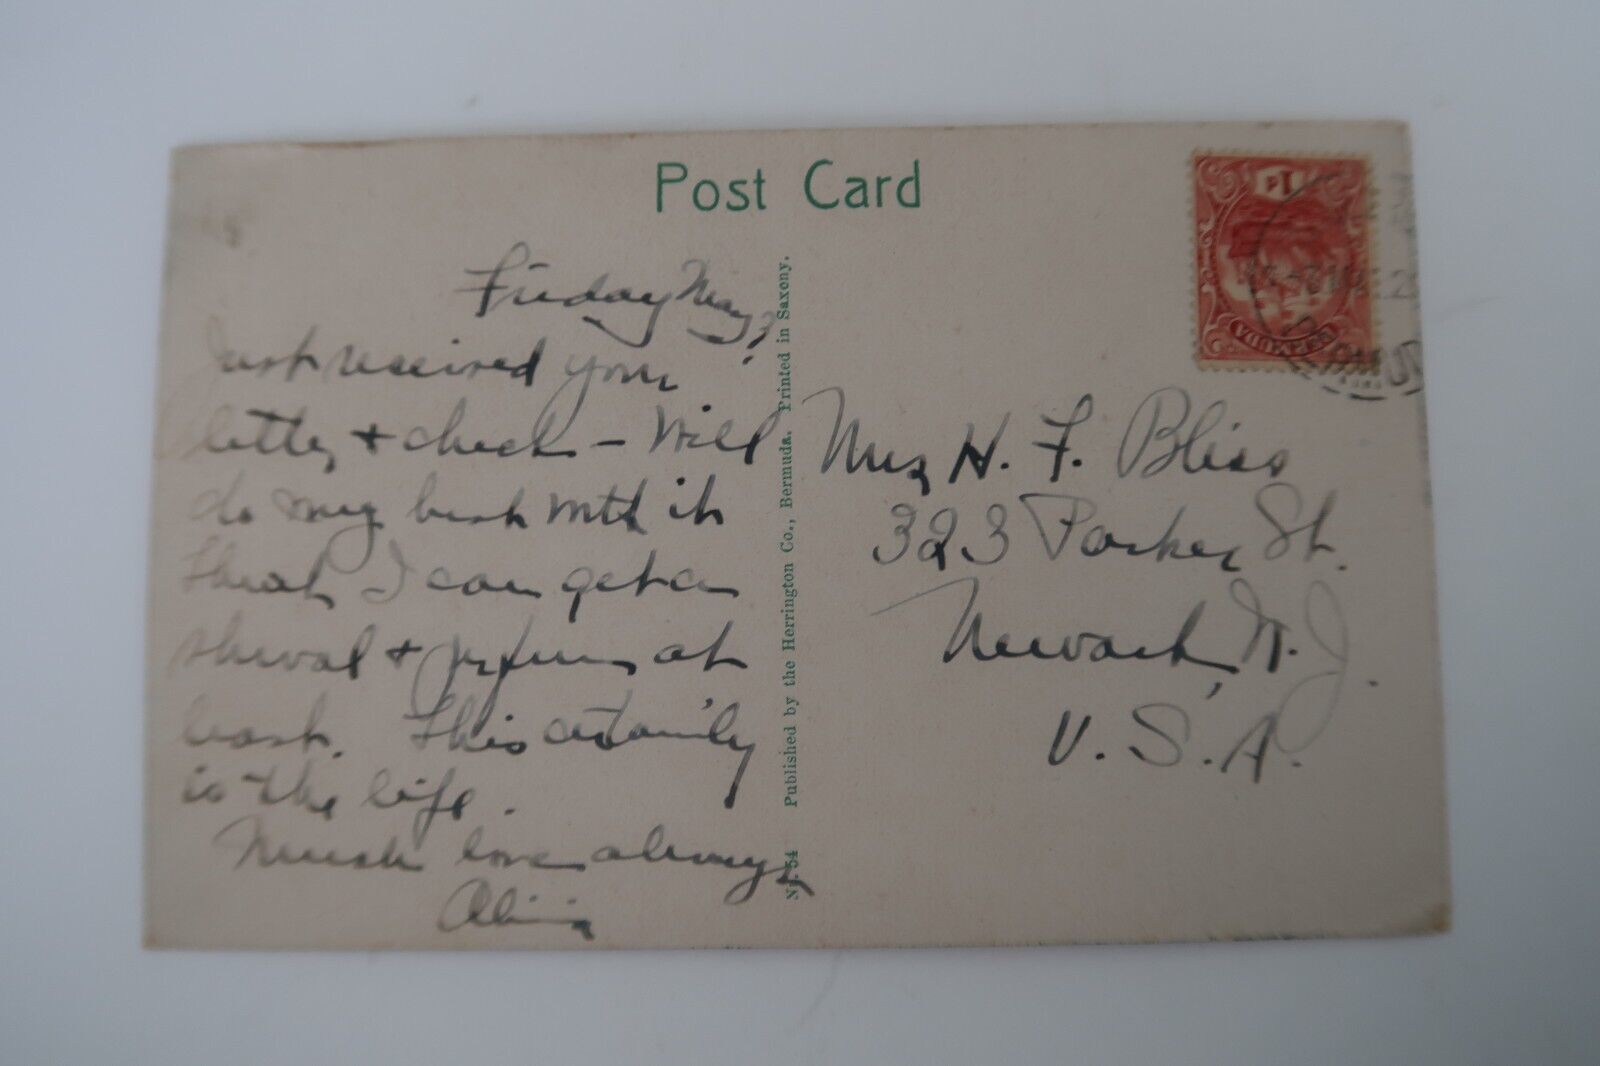 Post Card
Friday May
Just received your
letter & check – Will
do my best with it
I can get a
shawl & perfume at
least. This certainly
is the life.
Much love always
No. 54 Published by the Herrington Co., Bermuda. Printed in Saxony.
Mrs H. F. Bliss
323 Parker St.
Newark, N. J.
U. S. A.
BERMUDA